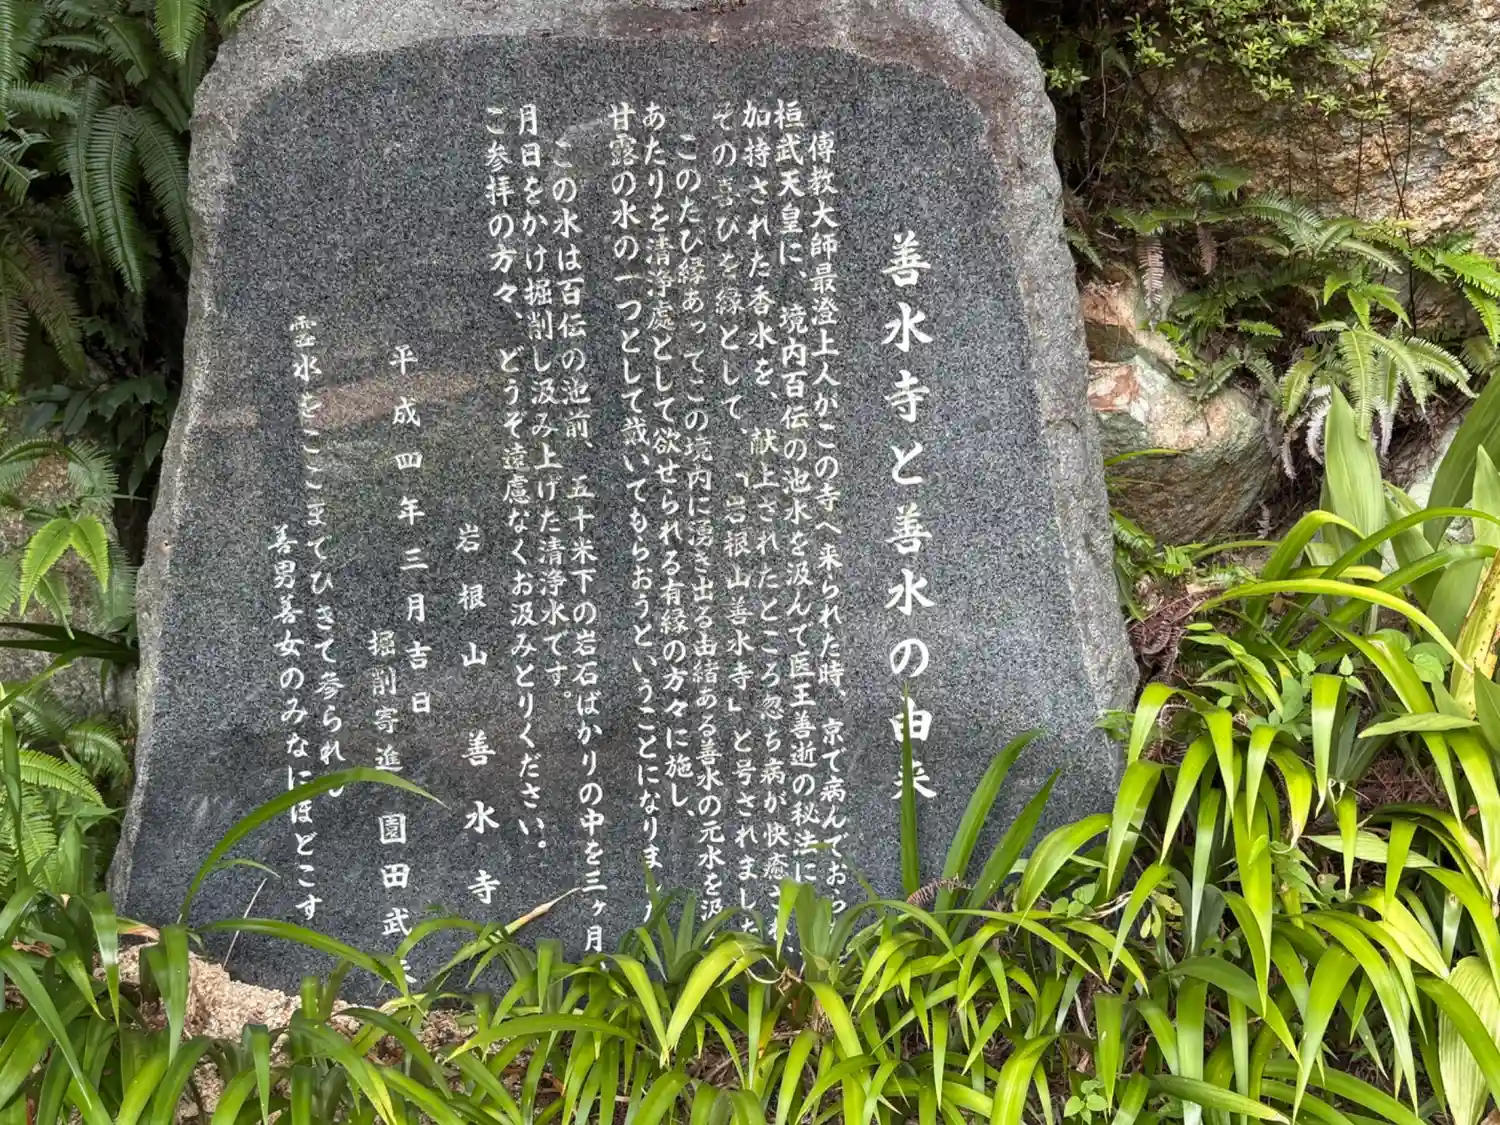 善水寺と善水の由来
傳教大師最澄上人がこの寺へ来られた時、京で病んでおら
桓武天皇に、境内百伝の池水を汲んで医王善逝の秘法に
加持された香水を、献上されたところ忽ち病が快癒され、
その喜びを縁として、「岩根山善水寺」と号されました
このたび縁あってこの境内に湧き出る由緒ある善水の元水を汲
あたりを清浄處として欲せられる有縁の方々に施し、
甘露の水の一つとして戴いてもらおうということになりました
この水は百伝の池前、五十米下の岩石ばかりの中を三ヶ月
月日をかけ掘削し汲み上げた清浄水です。
ご参拝の方々、どうぞ遠慮なくお汲みとりください。
岩根山 善水寺
平成四年三月吉日
掘削寄進 園田武
霊水をここまでひきて参られし
善男善女のみなにほどこす